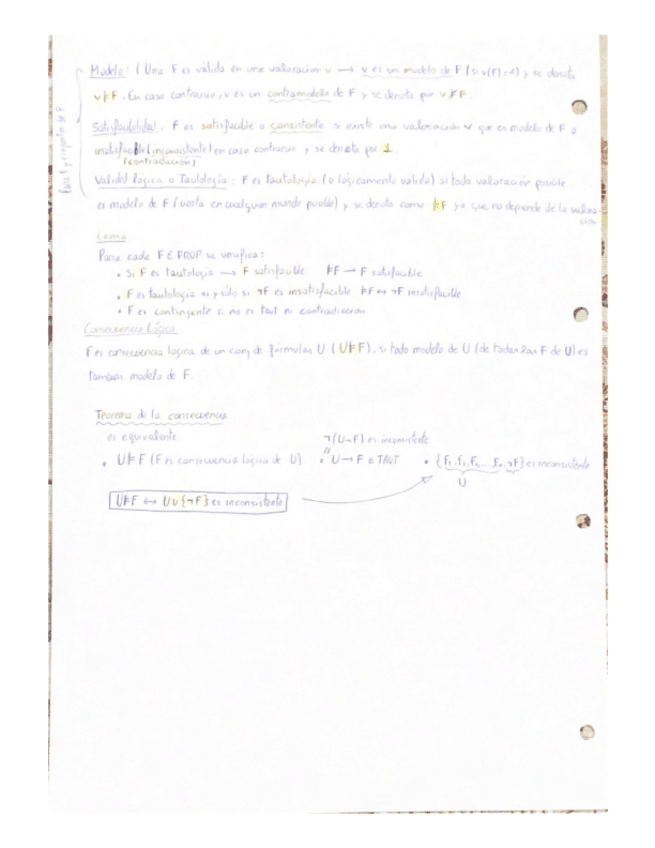 Para 1 y conjuntos de F
Modelo: (Una F es válida en una valoración v → v es un modelo de F (si v(F)=1) y se denota
v⊨F. En caso contrario, v es un contramodelo de F y se denota por v⊭F.
Satisfacibilidad: F es satisfacible o consistente si existe una valoración v que es modelo de F o
insatisfacible (inconsistente) en caso contrario y se denota por ⊥.
(contradicción)
Validez lógica o Tautología: F es tautología (o lógicamente válida) si toda valoración posible
es modelo de F (cierta en cualquier mundo posible) y se denota como ⊨F ya que no depende de la valora-
ción
Lema
Para cada F ∈ PROP se verifica:
• Si F es tautología → F satisfacible ⊨F → F satisfacible
• F es tautología si y sólo si ¬F es insatisfacible ⊨F ↔ ¬F insatisfacible
• F es contingente si no es taut ni contradicción
Consecuencia Lógica
F es consecuencia lógica de un conj de fórmulas U (U⊨F), si todo modelo de U (de todas las F de U) es
también modelo de F.
Teorema de la consecuencia
es equivalente:
¬(U→F) es inconsistente
• U⊨F (F es consecuencia lógica de U) • U → F ∈ TAUT • {F₁, F₂, F₃, ... Fₙ, ¬F} es inconsistente
U
U⊨F ↔ U∪{¬F} es inconsistente